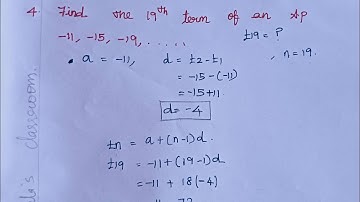 4. Find the 19th term of an AP
-11, -15, -19, ..... t19 = ?
• a = -11, d = t2 - t1 , n = 19.
= -15 - (-11)
= -15 + 11
d = -4
tn = a + (n-1)d.
t19 = -11 + (19-1)d
= -11 + 18(-4)
classroom.